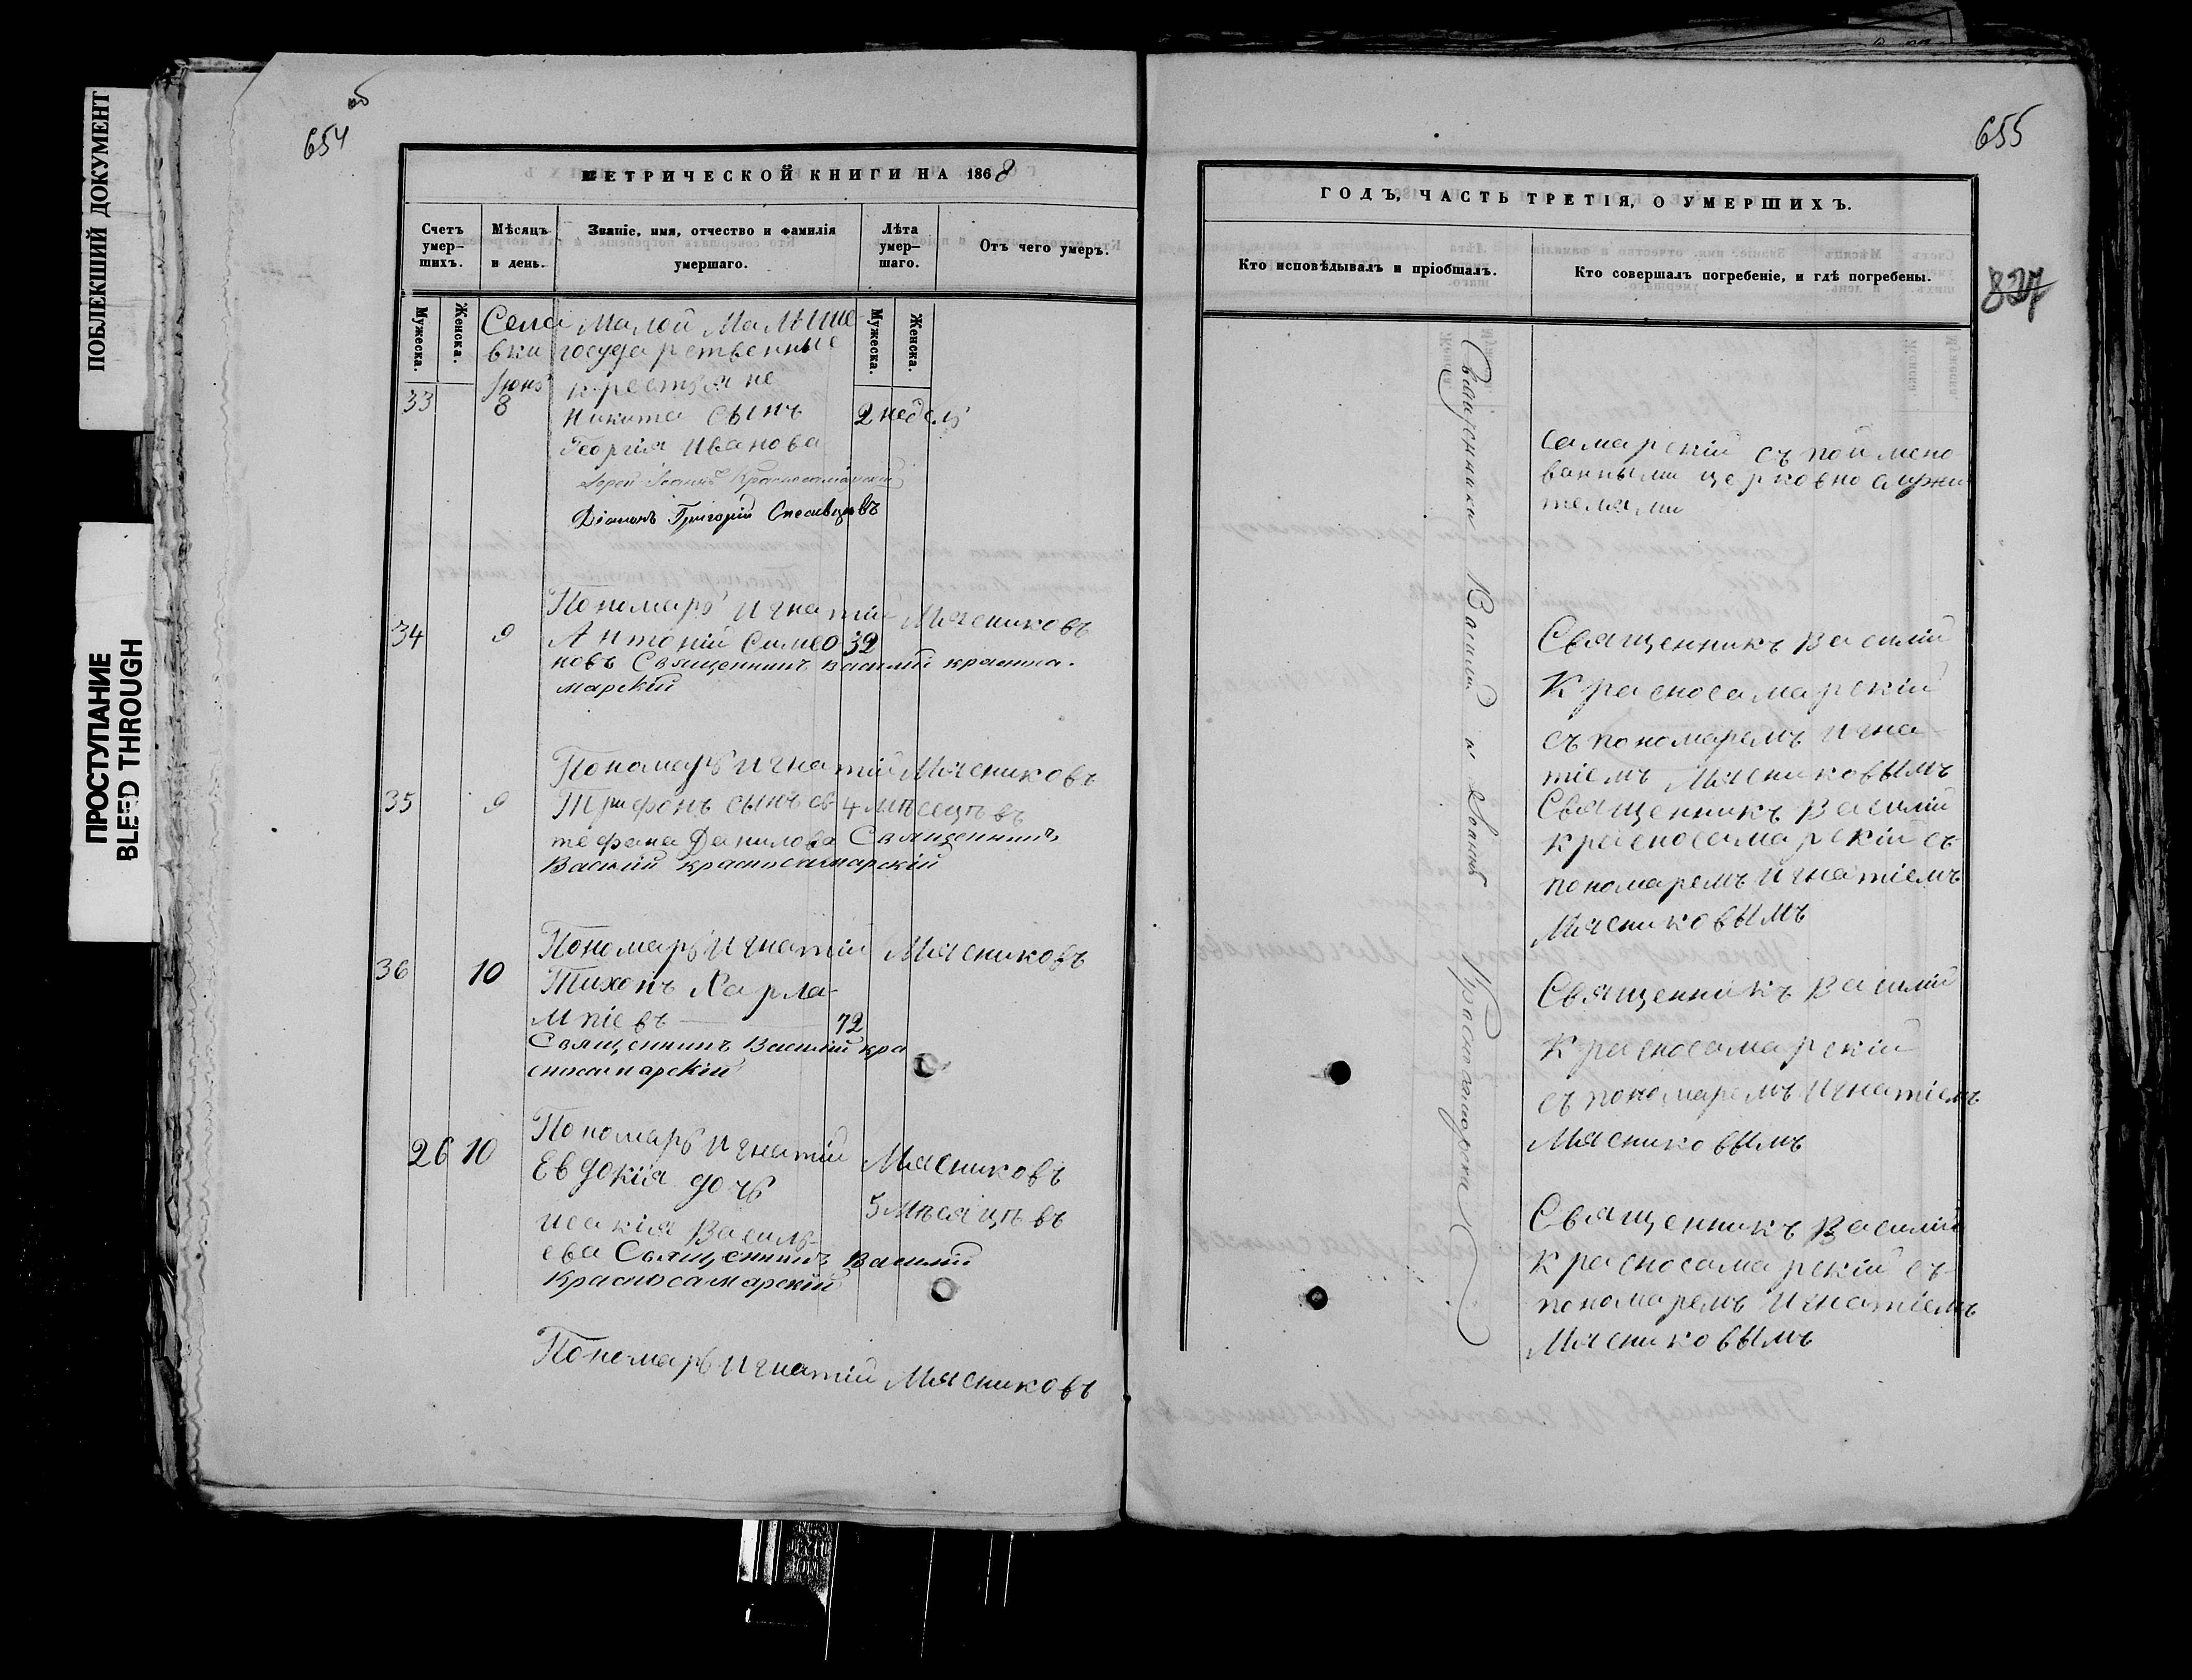 ПОБЛЕКШИЙ ДОКУМЕНТ
ПРОСТУПАНИЕ
BLEED THROUGH
об
654
МЕТРИЧЕСКОЙ КНИГИ НА 1868
Счетъ умер-шихъ.
Мѣсяцъ и день.
Званіе, имя, отчество и фамилія умершаго.
Лѣта умер-шаго.
Отъ чего умеръ.
Мужеска.
Женска.
Мужеска.
Женска.
Села Малой Малыше
вки государственные
Іюнь крестьяне
33 8 Никита сынъ 2 недѣль
Георгія Иванова
Іерей Іоаннъ Красносамарский
Діаконъ Григорій
Пономарь Игнатій Мясниковъ
34 9 Антоній Симео 32
новъ Священникъ Василий красноса-
марскій
Пономарь Игнатій Мясниковъ
35 9 Трифонъ сынъ Св 4 мѣсецъвъ
тефана Данилова Священникъ
Василий красносамарскій
Пономарь Игнатій Мясниковъ
36 10 Тихонъ Харла-
мпіевъ 72
Священникъ Василий кра
сносамарскій
Пономарь Игнатій Мясниковъ
26 10 Евдокія дочь
5 мѣсяцъвъ
Исакія Василь-
ева Священникъ Василий
Красносамарскій
Пономарь Игнатій Мясниковъ
655
827
ГОДЪ, ЧАСТЬ ТРЕТІЯ, О УМЕРШИХЪ.
Кто исповѣдывалъ и пріобщалъ.
Кто совершалъ погребеніе, и гдѣ погребены.
Священники Василий и Іоаннъ Красносамарскіе
самарскій съ поимено
ванными церковнослужи
телями
Священникъ Василий
Красносамарскій
съ пономаремъ Игна
тіемъ Мясниковымъ
Священникъ Василий
красносамарскій съ
пономаремъ Игнатіемъ
Мясниковымъ
Священникъ Василий
Красносамарскій
съ пономаремъ Игнатіемъ
Мясниковымъ
Священникъ Василий
красносамарскій съ
пономаремъ Игнатіемъ
Мясниковымъ